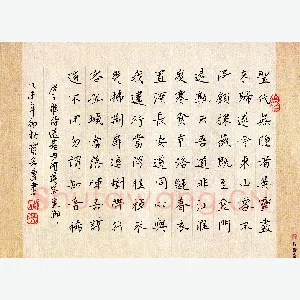 聖代無隱者英靈盡
來歸遂令東山客不
得顧採薇既至金門
遠孰云吾道非江淮
度寒食京洛縫春衣
置酒長安道同心與
我違行當浮桂棹未
幾拂荊扉遠樹帶行
客孤城當落暉吾謀
適不用勿謂知音稀
年初秋
書